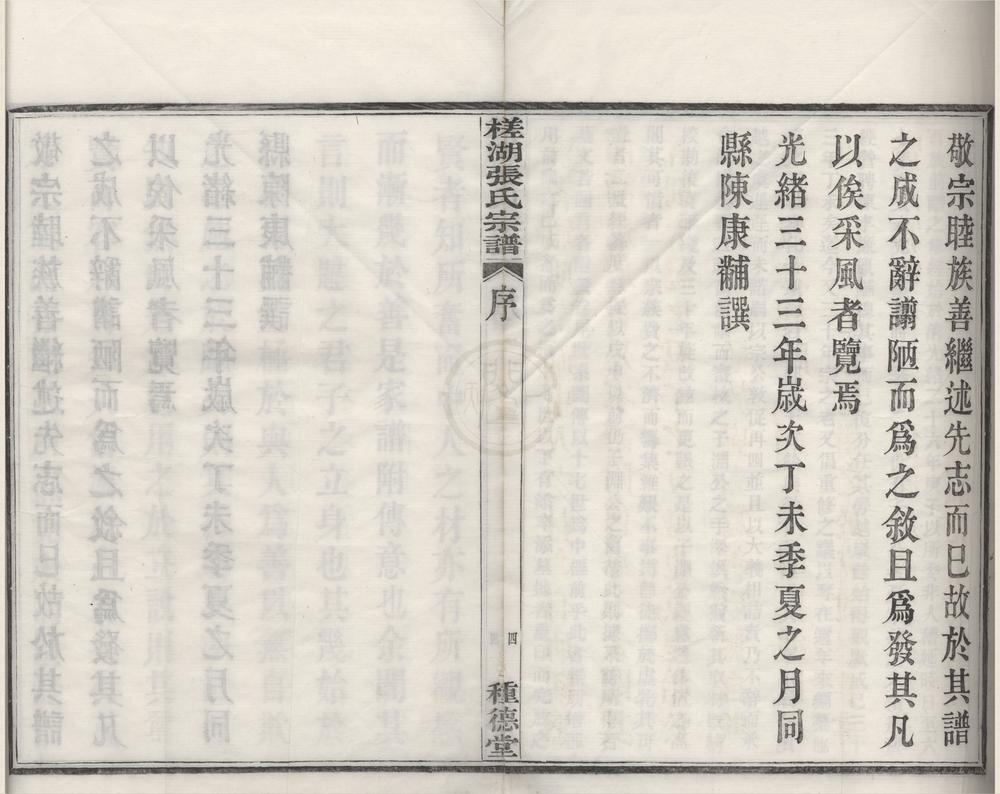 敬宗睦族善繼述先志而已故於其譜
之成不辭謭陋而爲之敘且爲發其凡
以俟采風者覽焉
光緒三十三年歲次丁未季夏之月同
縣陳康黼譔
槎湖張氏宗譜
序
四
種德堂